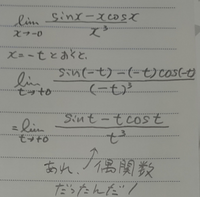 lim x→-0 (sinx - x cosx) / x³
x = -t とおくと、
lim t→+0 (sin(-t) - (-t) cos(-t)) / (-t)³
= lim t→+0 (sin t - t cos t) / t³
あれ、偶関数
だったんだ!